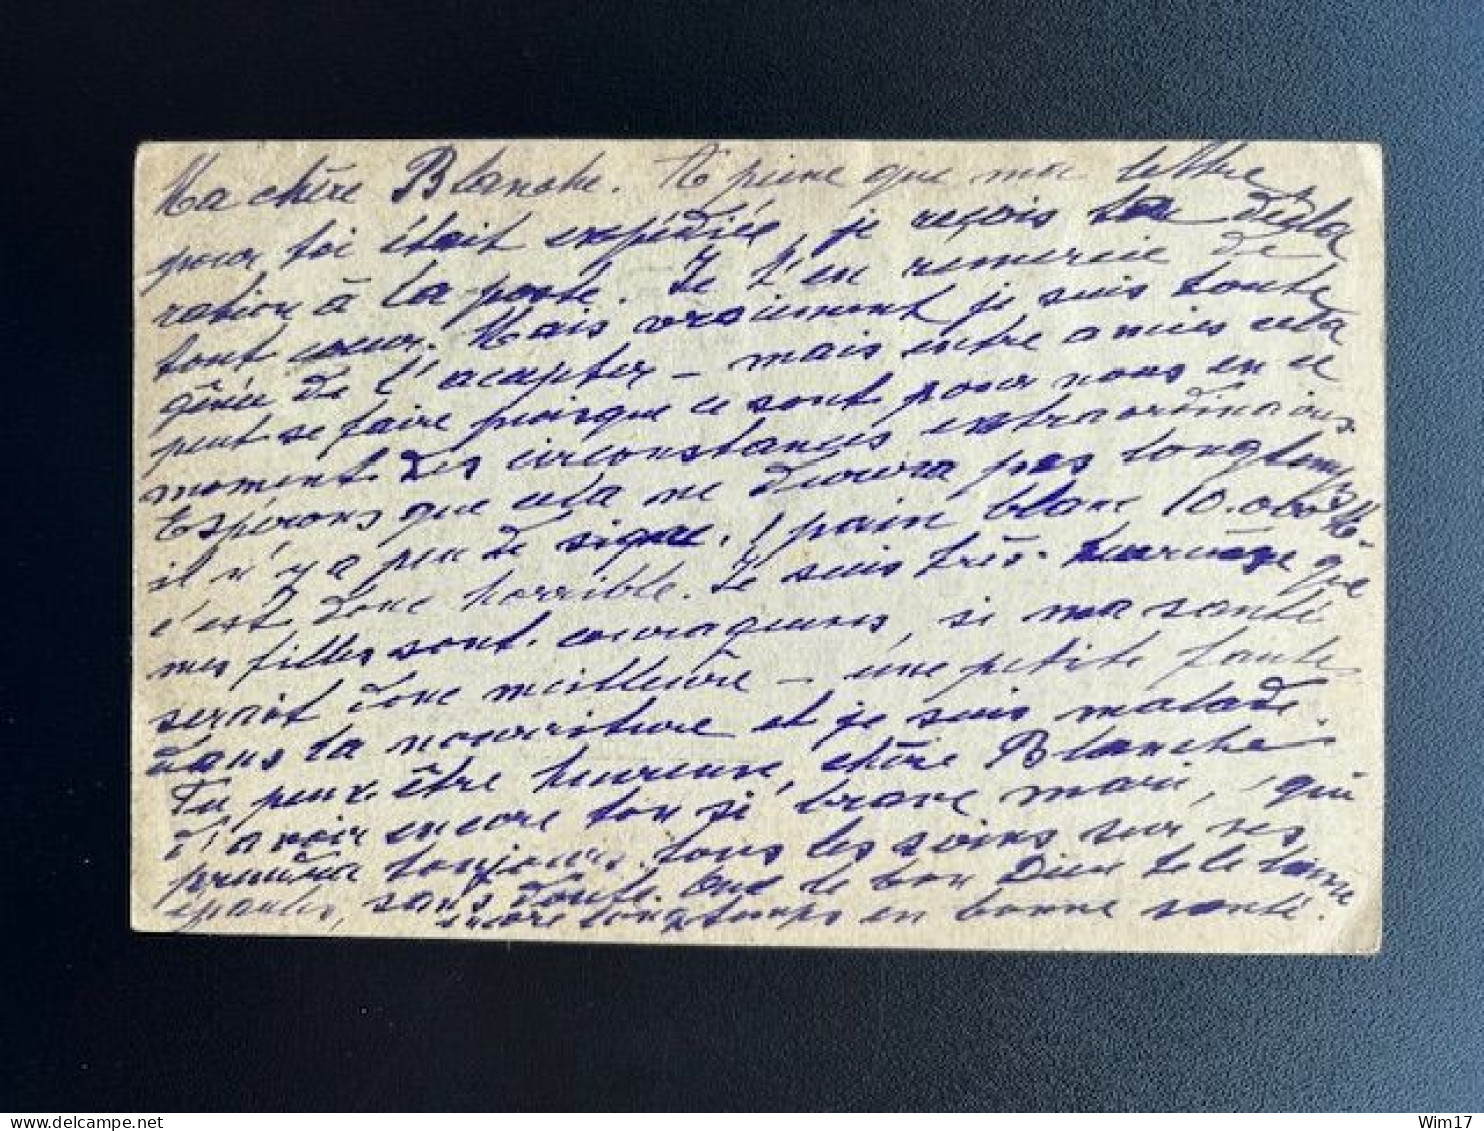 Ma chère Blanche. A peine que ma lettre
pour toi était expédiée, je reçois ta décla
ration à la poste. Je t'en remercie de
tout coeur. Mais vraiment je suis toute
gênée de l'accepter - mais entre amies cela
peut se faire puisque ce sont pour nous en ce
moment des circonstances extraordinaires.
Espérons que cela ne durera pas longtemps
il n'y a peu de signe. 1 pain blanc 10.000 M.
c'est donc horrible. Je suis très heureuse que
mes filles sont courageuses, si ma santé
serait donc meilleure - une petite faute
dans la nourriture et je suis malade.
Tu peux être heureuse, chère Blanche
d'avoir encore ton si brave mari, qui
prendra toujours tous les soins sur ses
épaules, sans doute. Que le bon Dieu te le laisse
encore longtemps en bonne santé.
Wim17